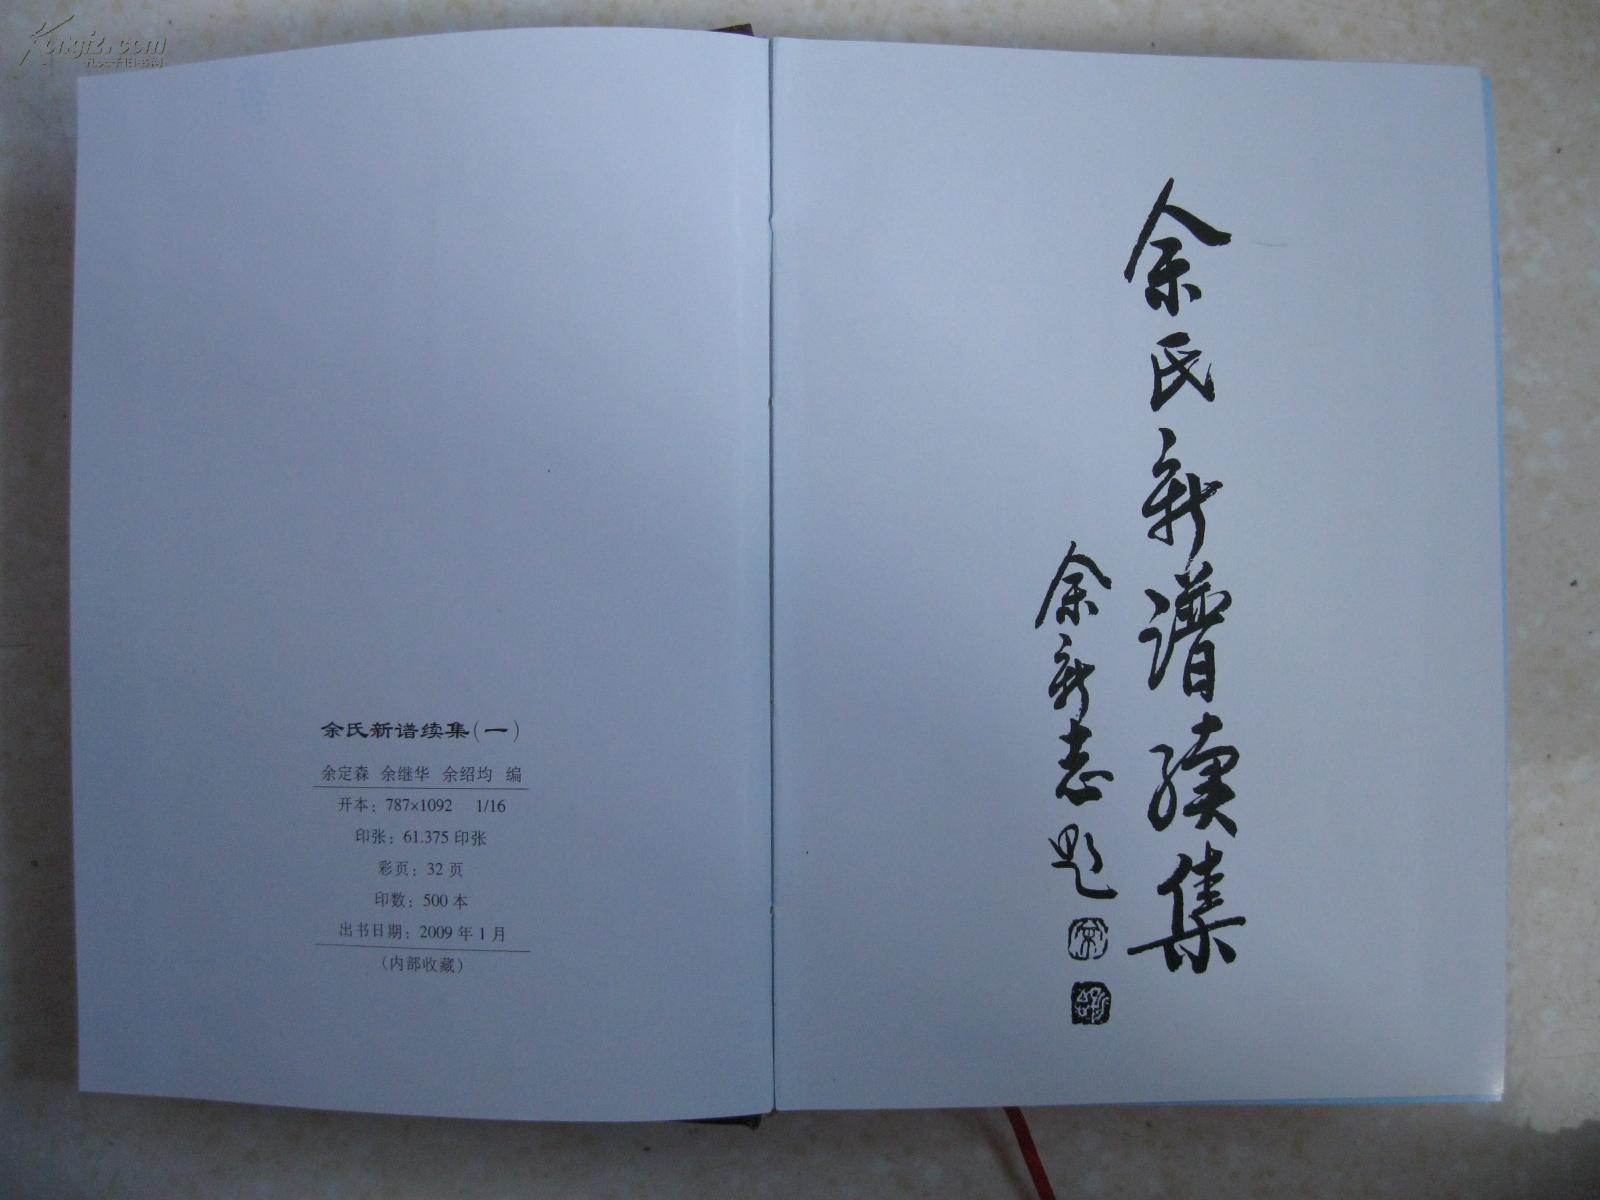 Kongfz.com
孔夫子旧书网
余氏新谱续集(一)
余定森 余继华 余绍均 编
开本: 787×1092 1/16
印张: 61.375 印张
彩页: 32 页
印数: 500 本
出书日期: 2009 年 1 月
(内部收藏)
余氏新谱续集
余新志题